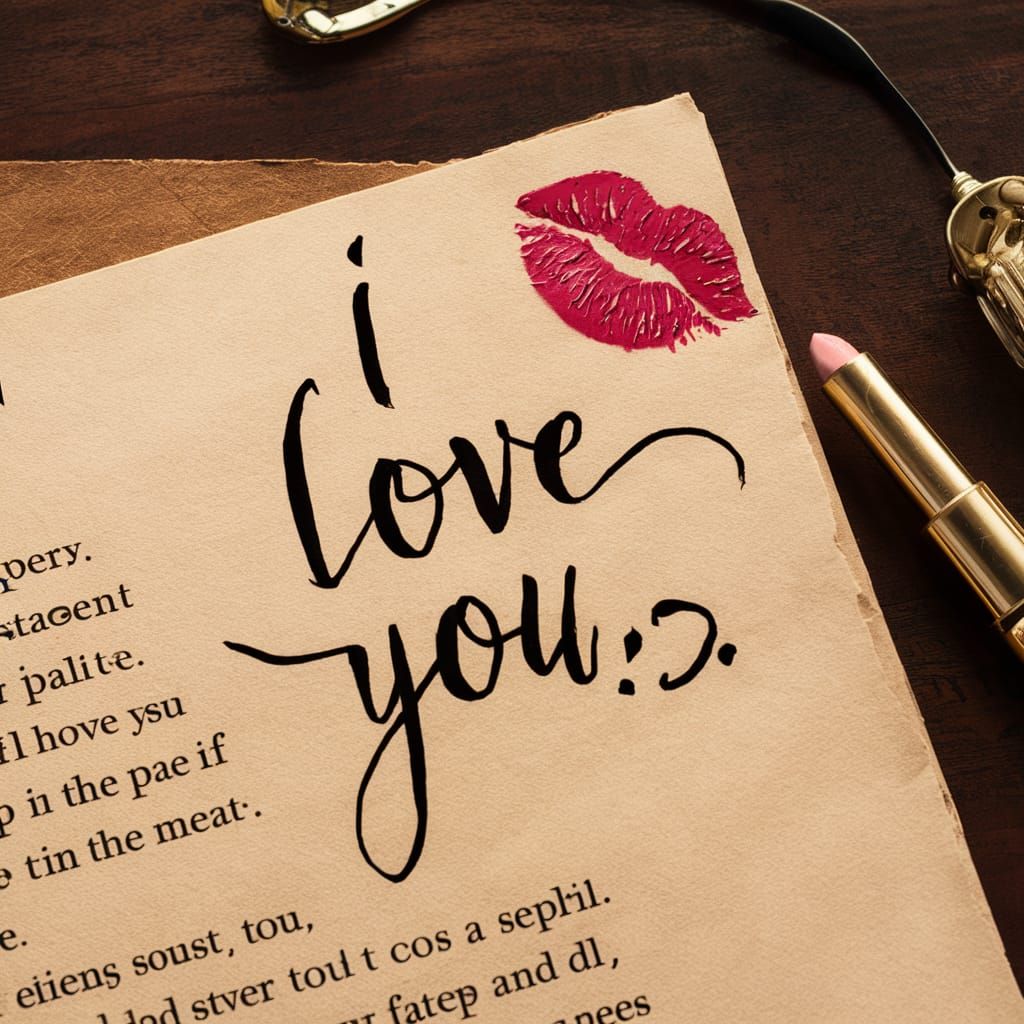 i
love
you
pery.
palite.
hove ysu
in the pae if
tin the meat.
e.
eitiens soust, tou,
stver toul t cos a sephil.
fatep and dl,